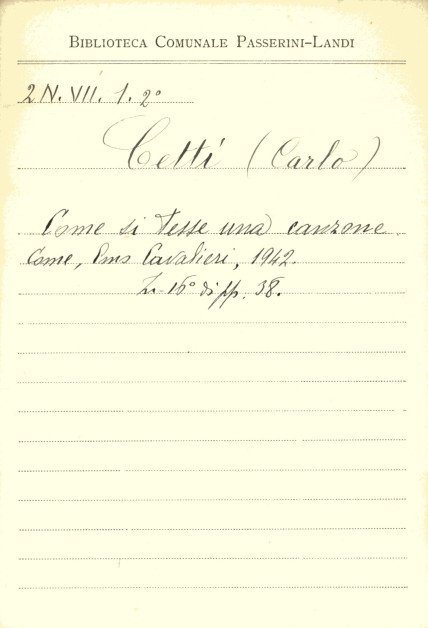 BIBLIOTECA COMUNALE PASSERINI-LANDI
2 N. VII. 1. 2°
Cetti (Carlo)
Come si tesse una canzone.
Come, Cavalieri, 1942.
16° di pp. 38.